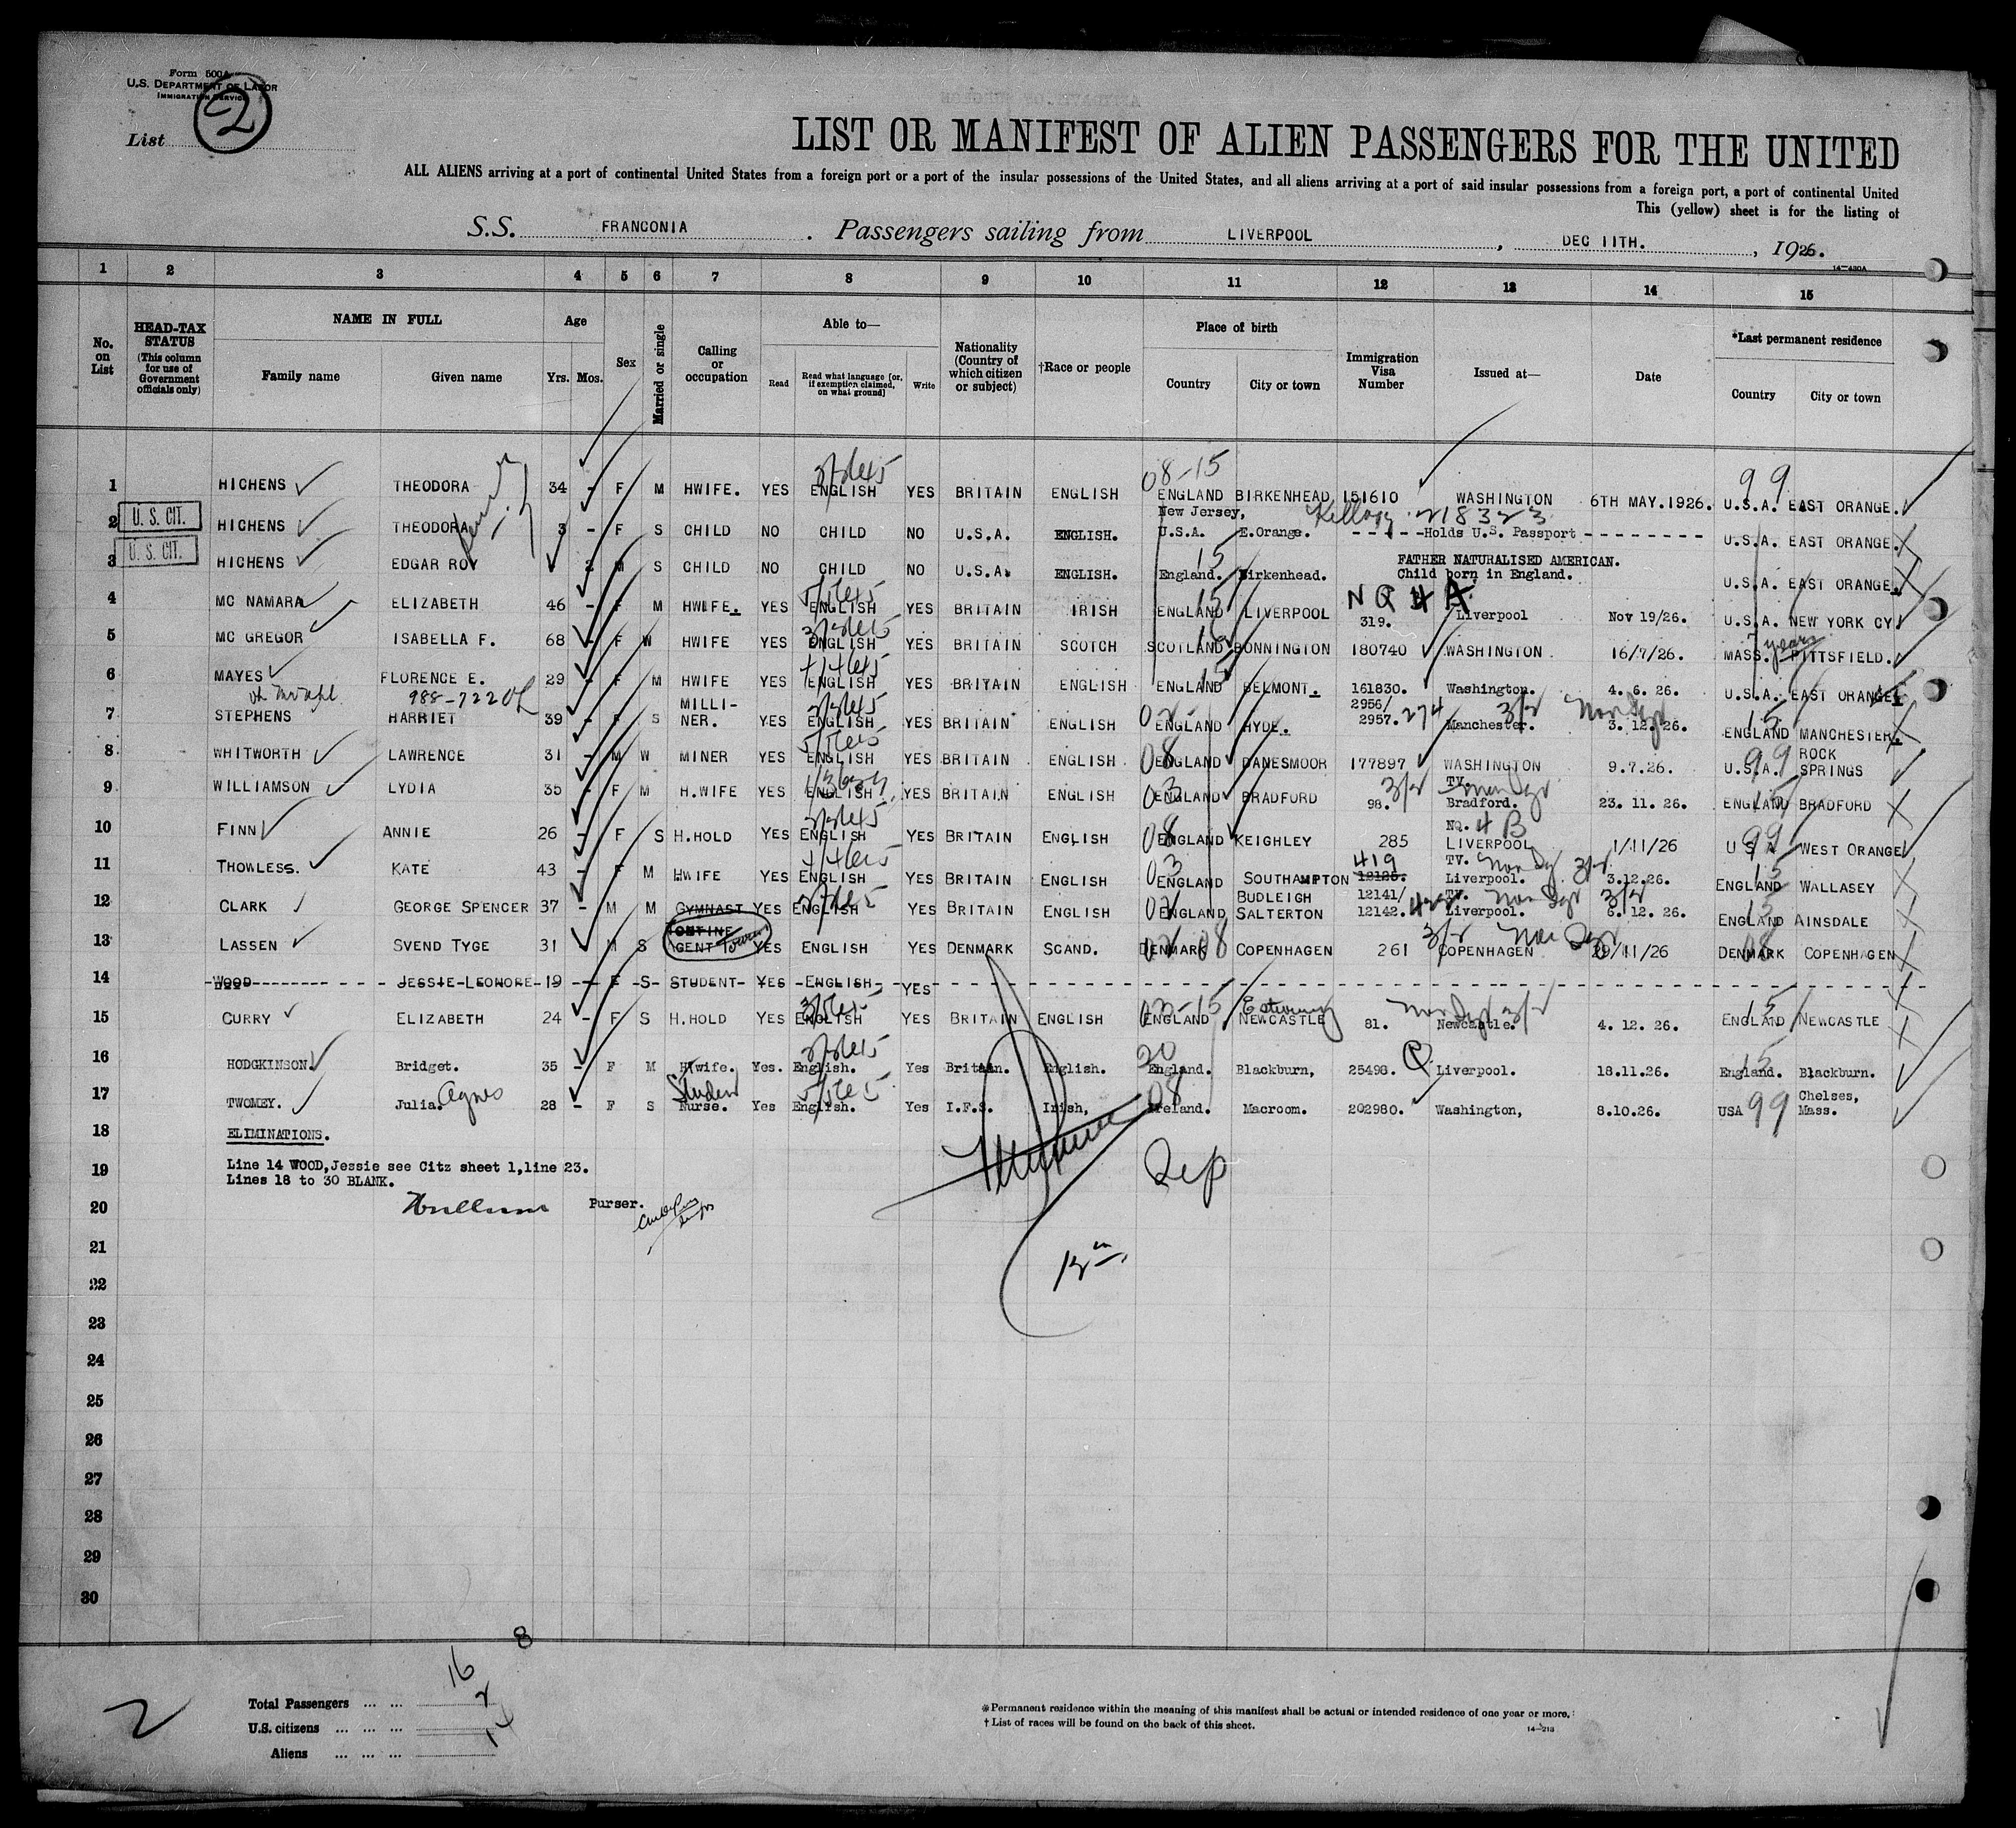 Form 500A
U.S. DEPARTMENT OF LABOR
IMMIGRATION SERVICE
List 2
LIST OR MANIFEST OF ALIEN PASSENGERS FOR THE UNITED
ALL ALIENS arriving at a port of continental United States from a foreign port or a port of the insular possessions of the United States, and all aliens arriving at a port of said insular possessions from a foreign port, a port of continental United
This (yellow) sheet is for the listing of
S.S. FRANCONIA. Passengers sailing from LIVERPOOL, DEC 11TH., 1926.
14-430A
1 2 3 4 5 6 7 8 9 10 11 12 13 14 15
No. on List
HEAD-TAX STATUS (This column for use of Government officials only)
NAME IN FULL
Family name Given name
Age
Yrs. Mos.
Sex
Married or single
Calling or occupation
Able to—
Read Read what language [or, if exemption claimed, on what ground] Write
Nationality (Country of which citizen or subject)
†Race or people
Place of birth
Country City or town
Immigration Visa Number
Issued at—
Date
*Last permanent residence
Country City or town
1 HICHENS THEODORA 34 - F M HWIFE. YES ENGLISH YES BRITAIN ENGLISH 08-15 ENGLAND BIRKENHEAD 151610 WASHINGTON 6TH MAY.1926. 99 U.S.A. EAST ORANGE.
2 U. S. CIT. HICHENS THEODORA 3 - F S CHILD NO CHILD NO U.S.A. ENGLISH. New Jersey, U.S.A. E.Orange. Kellogg 218323 -----Holds U.S. Passport-------- U.S.A. EAST ORANGE.
3 U. S. CIT. HICHENS EDGAR ROY 2 M S CHILD NO CHILD NO U.S.A. ENGLISH. England. Birkenhead. FATHER NATURALISED AMERICAN. Child born in England. U.S.A. EAST ORANGE.
4 MC NAMARA ELIZABETH 46 - F M HWIFE. YES ENGLISH YES BRITAIN IRISH ENGLAND LIVERPOOL NQ 4 A 319. Liverpool Nov 19/26. U.S.A. NEW YORK CY
5 MC GREGOR ISABELLA F. 68 - F W HWIFE YES ENGLISH YES BRITAIN SCOTCH SCOTLAND BONNINGTON 180740 WASHINGTON 16/7/26. 7 years MASS. PITTSFIELD.
6 MAYES FLORENCE E. 29 - F M HWIFE YES ENGLISH YES BRITAIN ENGLISH ENGLAND BELMONT. 161830. Washington. 4. 6. 26. U.S.A. EAST ORANGE
988-72206
7 STEPHENS HARRIET 39 - F S MILLI-NER. YES ENGLISH YES BRITAIN ENGLISH ENGLAND HYDE. 2956/2957. 274 Manchester. 3. 12. 26. 15 ENGLAND MANCHESTER.
8 WHITWORTH LAWRENCE 31 - M W MINER YES ENGLISH YES BRITAIN ENGLISH 08 ENGLAND DANESMOOR 177897 WASHINGTON 9.7.26. 99 U.S.A. ROCK SPRINGS
9 WILLIAMSON LYDIA 35 - F M H.WIFE YES ENGLISH YES BRITAIN ENGLISH 03 ENGLAND BRADFORD 98. TV. Bradford. 23. 11. 26. 15 ENGLAND BRADFORD
10 FINN ANNIE 26 - F S H.HOLD YES ENGLISH YES BRITAIN ENGLISH 08 ENGLAND KEIGHLEY 285 NQ. 4 B LIVERPOOL 1/11/26 99 U S A WEST ORANGE
11 THOWLESS. KATE 43 - F M HWIFE YES ENGLISH YES BRITAIN ENGLISH 03 ENGLAND SOUTHAMPTON 419 12125. TV. Liverpool. 3.12.26. 15 ENGLAND WALLASEY
12 CLARK GEORGE SPENCER 37 - M M GYMNAST YES ENGLISH YES BRITAIN ENGLISH ENGLAND BUDLEIGH SALTERTON 12141/12142. TV. Liverpool. 6. 12. 26. 15 ENGLAND AINSDALE
13 LASSEN SVEND TYGE 31 M S GENT YES ENGLISH YES DENMARK SCAND. DENMARK 08 COPENHAGEN 261 COPENHAGEN 29/11/26 08 DENMARK COPENHAGEN
14 WOOD JESSIE LEONORE 19 - F S STUDENT YES ENGLISH YES
15 CURRY ELIZABETH 24 - F S H.HOLD YES ENGLISH YES BRITAIN ENGLISH 03-15 ENGLAND. NEWCASTLE 81. Newcastle. 4. 12. 26. 15 ENGLAND NEWCASTLE
16 HODGKINSON. Bridget. 35 - F M H'wife. Yes. English. Yes Britain. English. 20 England. Blackburn, 25498. Liverpool. 18.11.26. 15 England. Blackburn.
17 TWOMEY. Julia. Agnes 28 - F S Student Nurse. Yes English. Yes I.F.S. Irish, 08 Ireland. Macroom. 202980. Washington, 8.10.26. USA 99 Chelses, Mass.
18 ELIMINATIONS.
19 Line 14 WOOD,Jessie see Citz sheet 1,line 23.
Lines 18 to 30 BLANK.
20 Purser.
21
22
23
24
25
26
27
28
29
30
8
2
Total Passengers ... ... 16
U.S. citizens ... ... ... 2
Aliens ... ... ... 14
*Permanent residence within the meaning of this manifest shall be actual or intended residence of one year or more.
†List of races will be found on the back of this sheet.
14-213